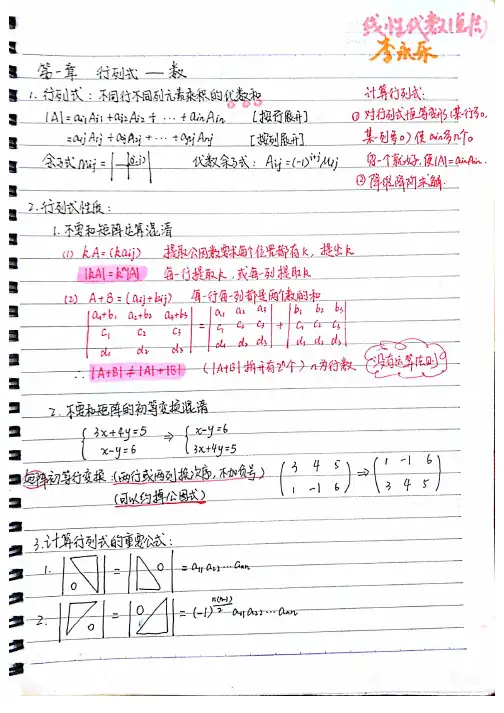 线性代数(重点)
李永乐
第一章 行列式 — 数
1. 行列式：不同行不同列元素乘积的代数和
|A| = ai1Ai1 + ai2Ai2 + … + ainAin [按行展开]
= a1jA1j + a2jA2j + … + anjAnj [按列展开]
余子式 Mij = 代数余子式：Aij = (-1)^(i+j) Mij
计算行列式：
① 对行列式恒等变形(某行多0,
某列多0)使
② 降维降阶求解.
2. 行列式性质：
1. 不要和矩阵运算混淆
(1) kA = (kaij) 提取公因数要求每个位置都有k，提出k
|kA| = k^n|A| 每一行提取k，或每一列提取k
(2) A+B = (aij+bij) 每一行每一列都是两个数的和
| a1+b1 a2+b2 a3+b3 | = | a1 a2 a3 | + | b1 b2 b3 |
| c1 c2 c3 | | c1 c2 c3 | | c1 c2 c3 |
| d1 d2 d3 | | d1 d2 d3 | | d1 d2 d3 |
∴ |A+B| ≠ |A|+|B| (|A+B| 拆开有2^n个) n为行数 没有运算法则
2. 不要和矩阵的初等变换混淆
{ 3x+4y=5 ⇒ { x-y=6
x-y=6 3x+4y=5
矩阵初等行变换：(两行或两列换次序，不加负号) ( 3 4 5 ) ⇒ ( 1 -1 6 )
(可以约掉公因式) ( 1 -1 6 ) ( 3 4 5 )
3. 计算行列式的重要公式：
1. | 0 | = | 0 | = a11 a22 … ann
2. | 0 | = | 0 | = (-1)^(n(n-1)/2) a11 a22 … ann